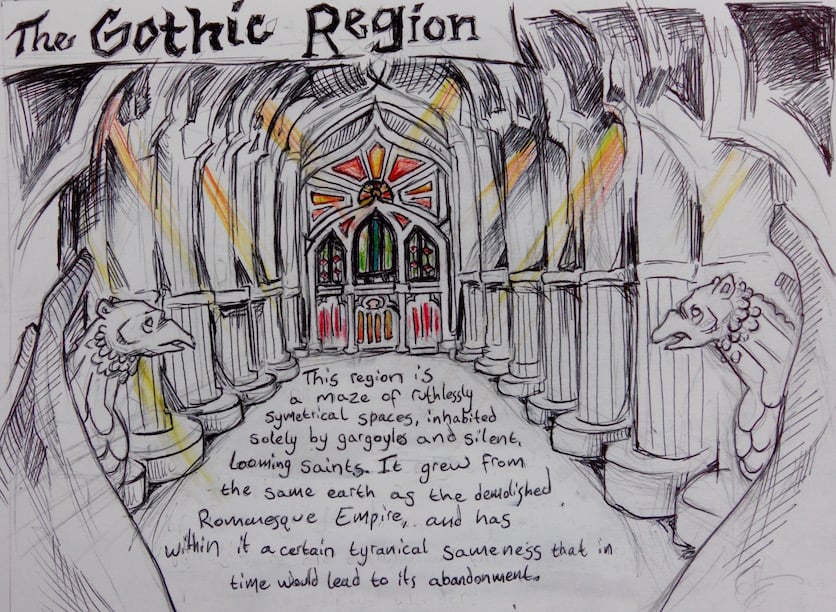 The Gothic Region
This region is
a maze of ruthlessly
symetrical spaces, inhabited
solely by gargoyles and silent,
looming saints. It grew from
the same earth as the demolished
Romanesque Empire, and has
within it a certain tyranical sameness that in
time would lead to its abandonment.